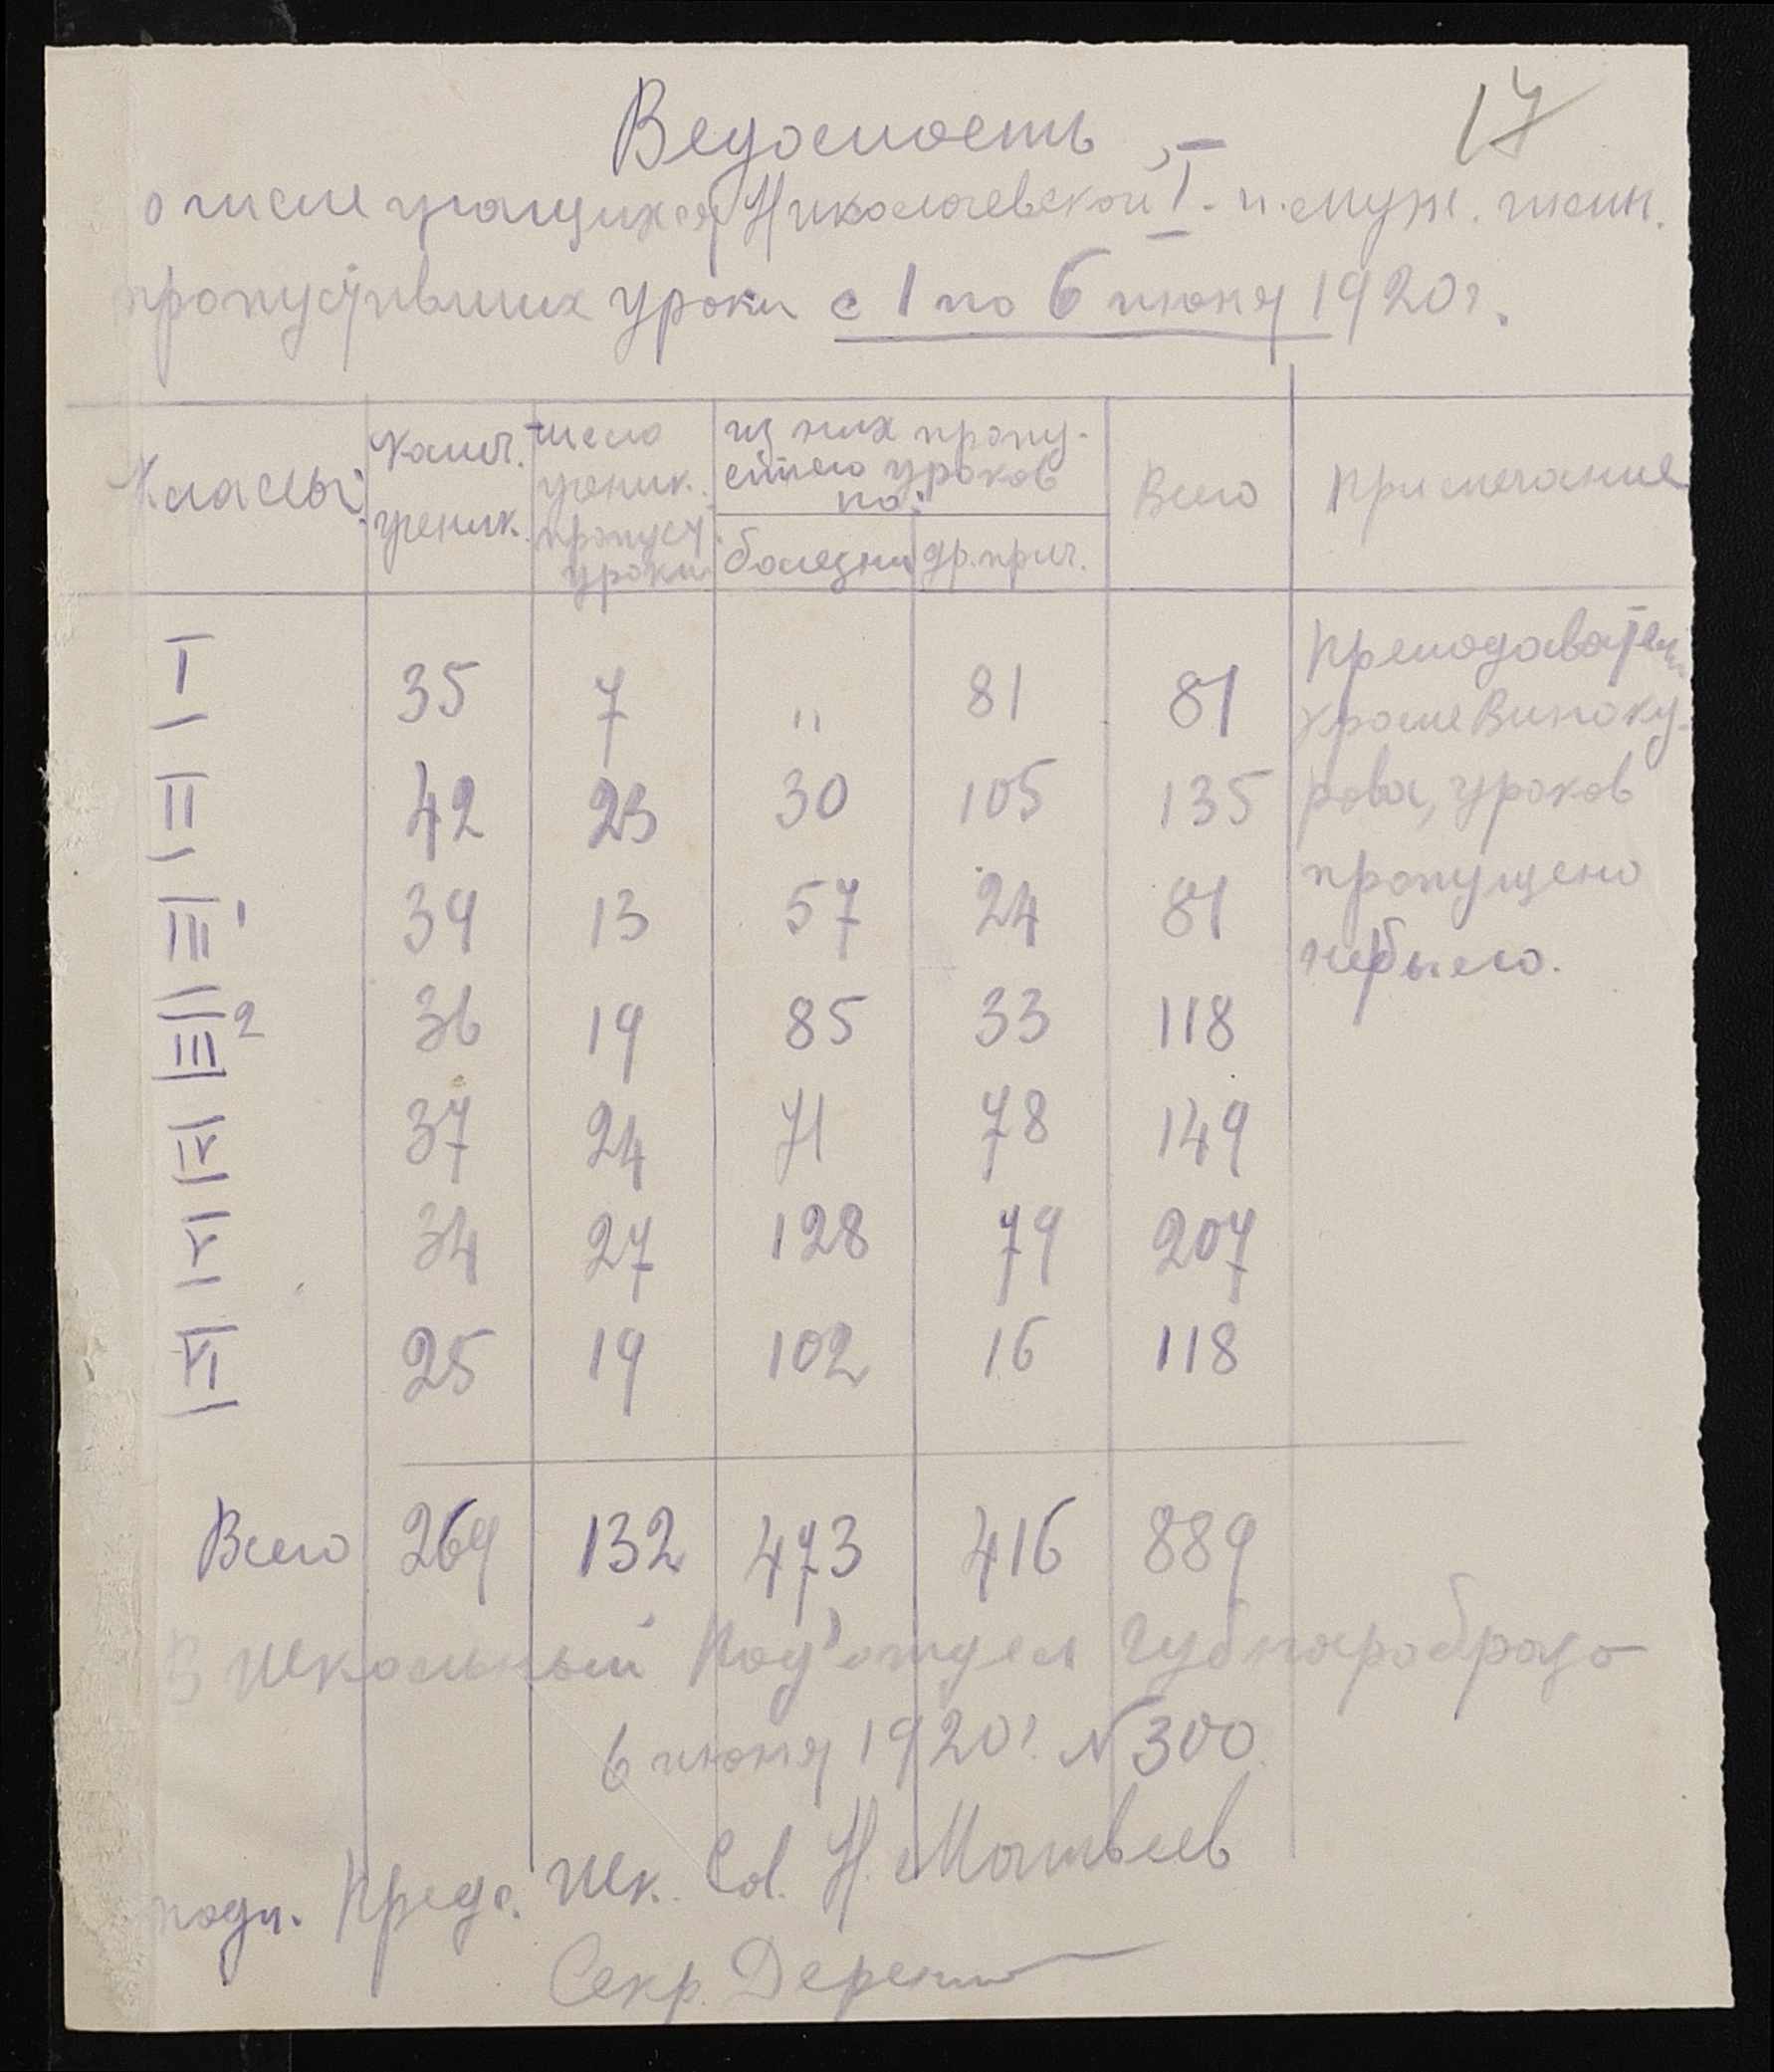 17
Ведомость
о числе учащихся Николаевской I-й муж. гимн.
пропустивших уроки с 1 по 6 июня 1920 г.
Классы: Колич. ученик. число ученик. пропуст. уроки из них пропустило уроков по: болезни др. прич. Всего Примечание
I 35 7 " 81 81
II 42 23 30 105 135
III¹ 39 13 57 24 81
III² 36 19 85 33 118
IV 37 24 71 78 149
V 34 27 128 79 207
VI 25 19 102 16 118
Преподавател.
кроме Виноку-
рова, уроков
пропущено
не было.
Всего 269 132 473 416 889
В Школьный Под'отдел Губнаробразо
6 июня 1920 г. N 300
подп. Предс. Шк. Сов. Н. Матвеев
Секр.